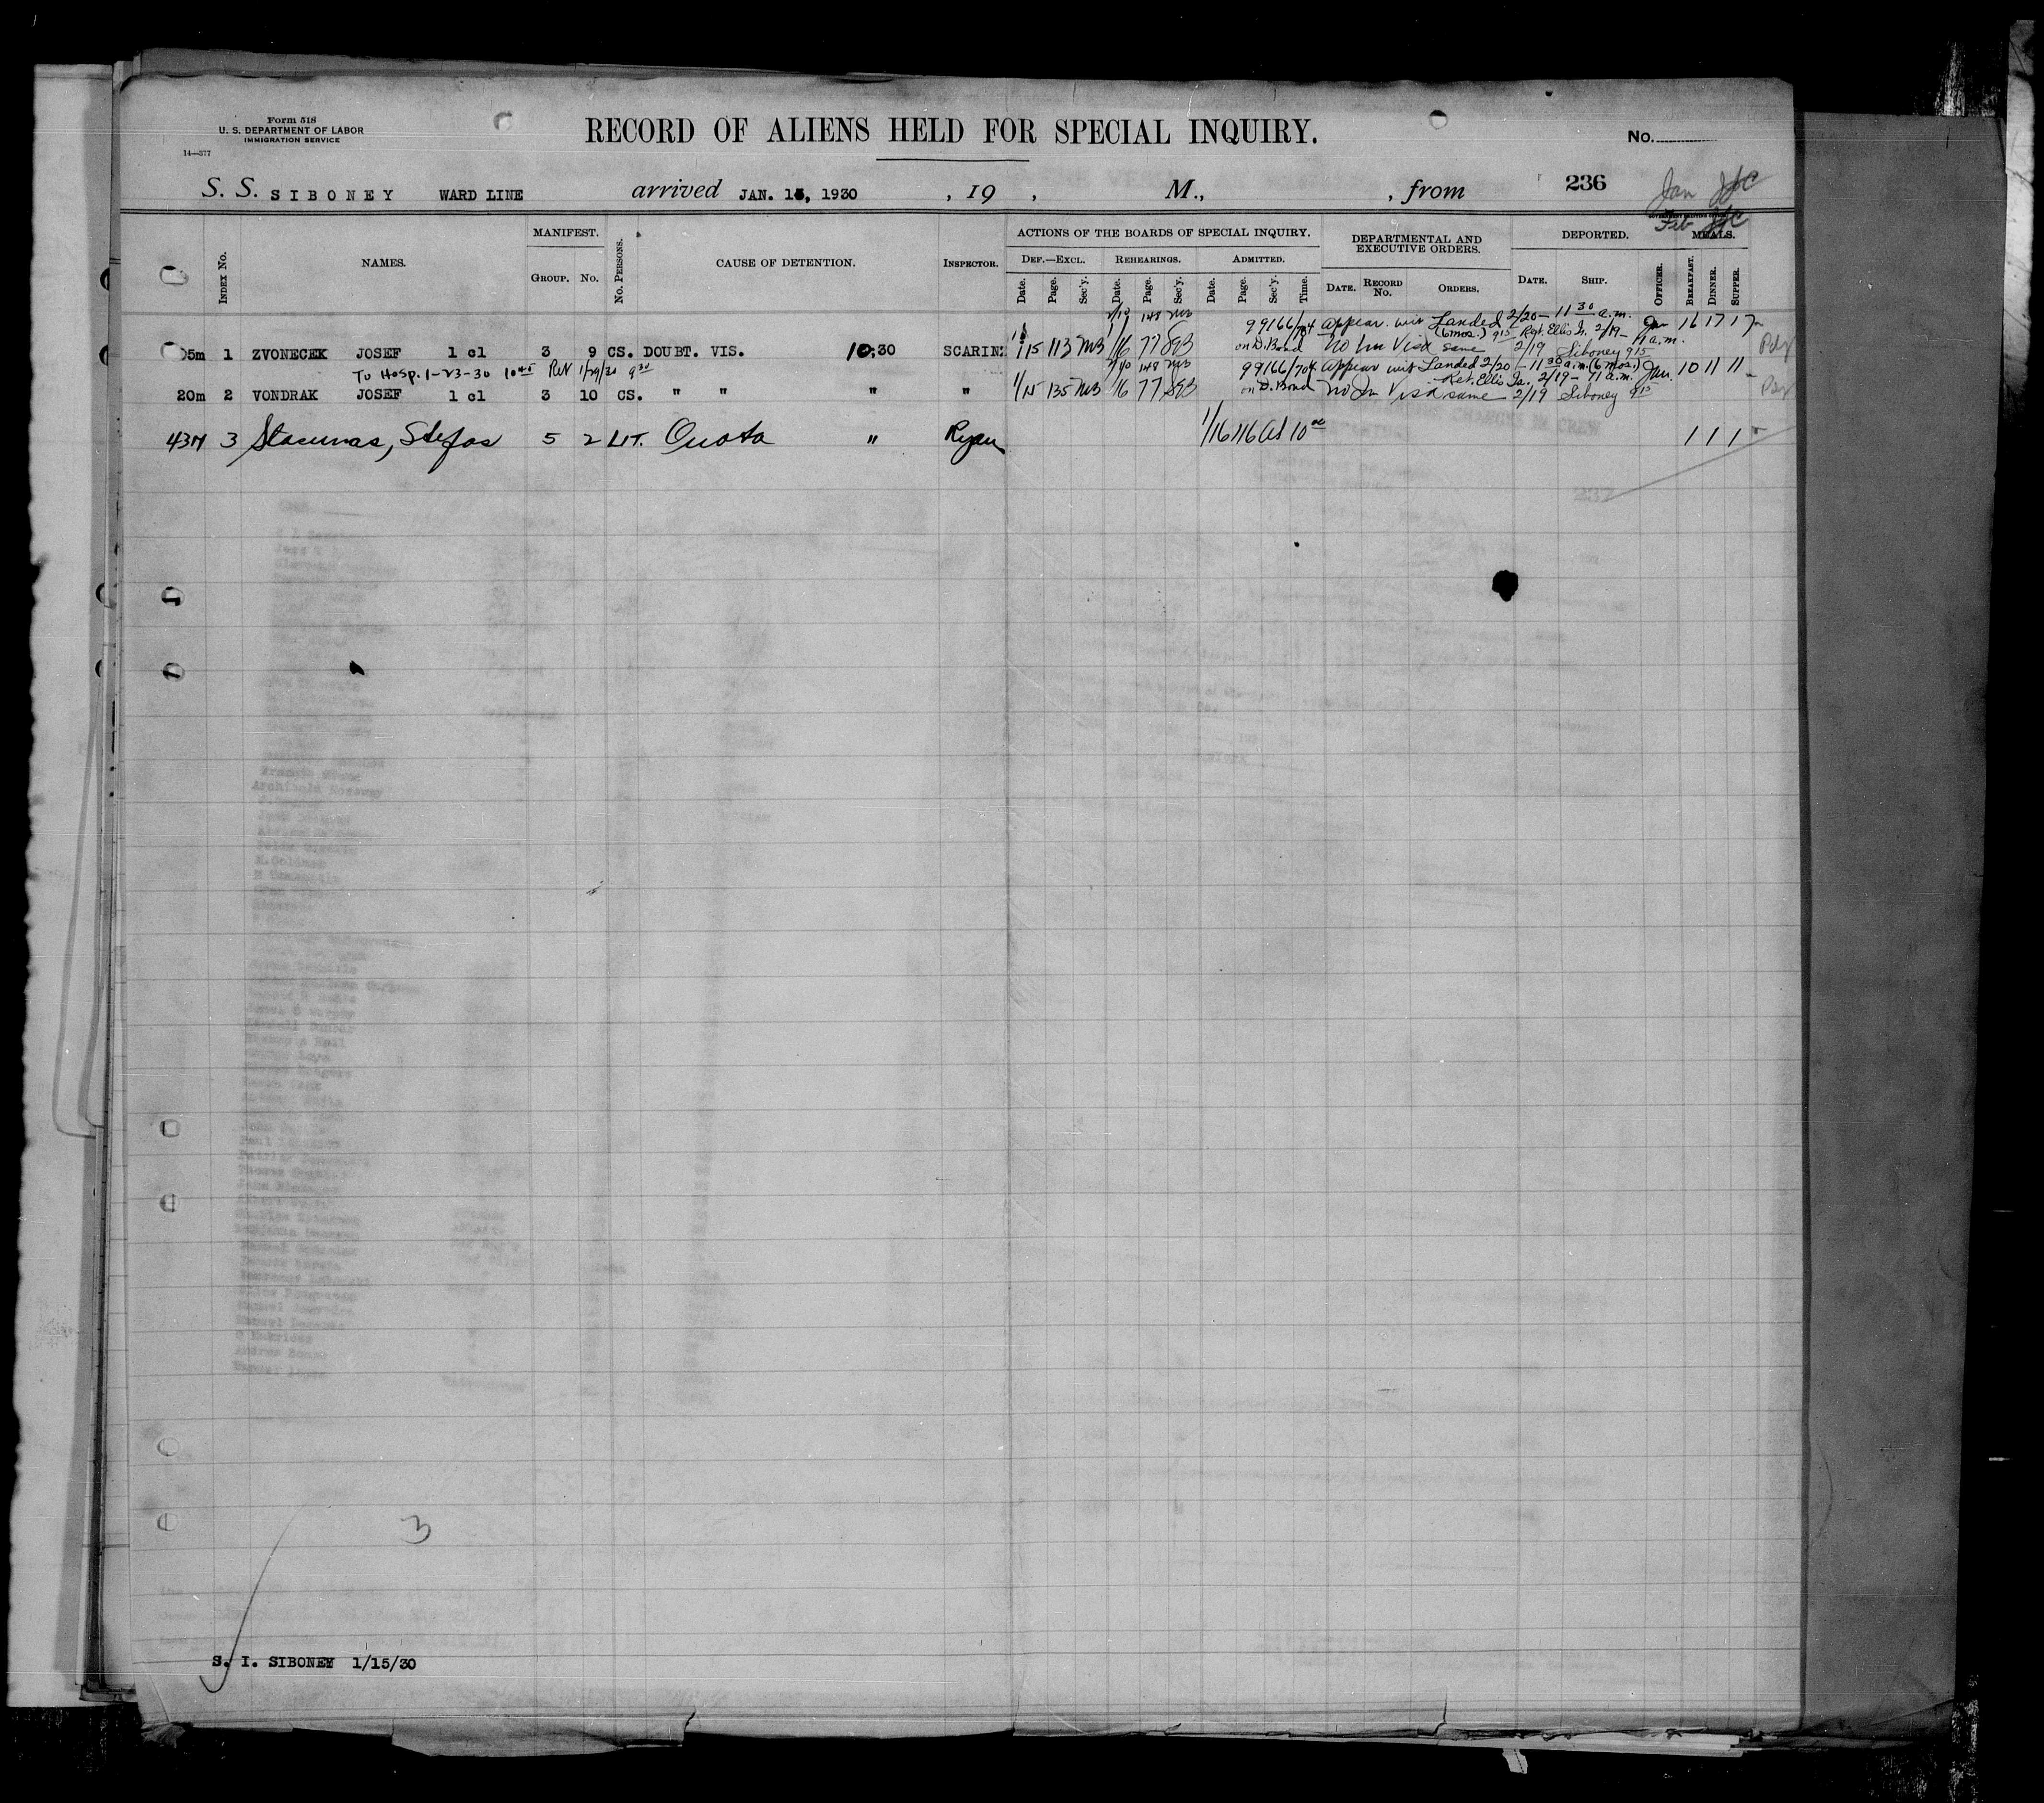 Form 518
U. S. DEPARTMENT OF LABOR
IMMIGRATION SERVICE
14—377
RECORD OF ALIENS HELD FOR SPECIAL INQUIRY.
No.
S. S. SIBONEY WARD LINE arrived JAN. 15, 1930 , 19 , M., , from 236
Jan
Feb
INDEX No. NAMES. MANIFEST. GROUP. No. No. PERSONS. CAUSE OF DETENTION. INSPECTOR.
ACTIONS OF THE BOARDS OF SPECIAL INQUIRY. DEPARTMENTAL AND EXECUTIVE ORDERS. DEPORTED. MEALS.
DEF.—EXCL. REHEARINGS. ADMITTED.
Date. Page. Sec'y. Date. Page. Sec'y. Date. Page. Sec'y. Time. DATE. RECORD No. ORDERS. DATE. SHIP. OFFICER. BREAKFAST. DINNER. SUPPER.
148 MB 99166/704 Appear. wit Landed 2/20 – 11 30 a.m.
on D. Bond (6 mos.) 9 15 Ret. Ellis Is. 2/19 – 11 a.m.
05m 1 ZVONECEK JOSEF 1 cl 3 9 CS. DOUBT. VIS. 10:30 SCARINZ 1/15 113 MB 1/16 77 no Im Visa same 2/19 Siboney 9 15 Jan 16 17 17
To Hosp. 1-23-30 10 45 Ret 1/29/30 9 30
148 MB 99166/704 Appear wit Landed 2/20 – 11 30 a.m. (6 mos.)
on D. Bond Ret. Ellis Is. 2/19 – 11 a.m.
20m 2 VONDRAK JOSEF 1 cl 3 10 CS. " " " " 1/15 135 MB 1/16 77 no Im Visa same 2/19 Siboney 9 15 Jan. 10 11 11
43M 3 Stefos 5 2 LIT. Quota " Ryan 1/16 116 10 00 1 1 1
237
3
S. I. SIBONEY 1/15/30